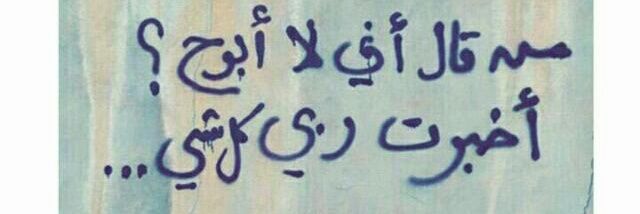 من قال أني لا أبوح ؟
أخبرت ربي كل شي ...